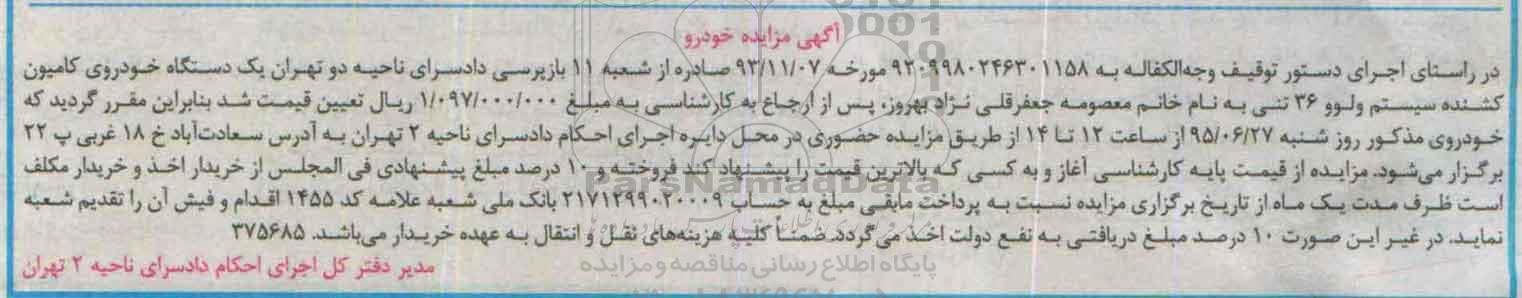 آگهی مزایده خودرو
در راستای اجرای دستور توقیف وجه‌الکفاله به ۹۲۰۹۹۸۰۲۴۶۳۰۱۱۵۸ مورخه ۹۳/۱۱/۰۷ صادره از شعبه ۱۱ بازپرسی دادسرای ناحیه دو تهران یک دستگاه خودروی کامیون
کشنده سیستم ولوو ۳۶ تنی به نام خانم معصومه جعفرقلی نژاد بهروز، پس از ارجاع به کارشناسی به مبلغ ۱/۰۹۷/۰۰۰/۰۰۰ ریال تعیین قیمت شد بنابراین مقرر گردید که
خودروی مذکور روز شنبه ۹۵/۰۶/۲۷ از ساعت ۱۲ تا ۱۴ از طریق مزایده حضوری در محل دایره اجرای احکام دادسرای ناحیه ۲ تهران به آدرس سعادت‌آباد خ ۱۸ غربی پ ۲۲
برگزار می‌شود. مزایده از قیمت پایه کارشناسی آغاز و به کسی که بالاترین قیمت را پیشنهاد کند فروخته و ۱۰ درصد مبلغ پیشنهادی فی المجلس از خریدار اخذ و خریدار مکلف
است ظرف مدت یک ماه از تاریخ برگزاری مزایده نسبت به پرداخت مابقی مبلغ به حساب ۲۱۷۱۲۹۹۰۲۰۰۰۹ بانک ملی شعبه علامه کد ۱۴۵۵ اقدام و فیش آن را تقدیم شعبه
نماید. در غیر این صورت ۱۰ درصد مبلغ دریافتی به نفع دولت اخذ می‌گردد. ضمناً کلیه هزینه‌های نقل و انتقال به عهده خریدار می‌باشد. ۳۷۵۶۸۵
مدیر دفتر کل اجرای احکام دادسرای ناحیه ۲ تهران
ParsNamadData
پایگاه اطلاع رسانی مناقصه و مزایده